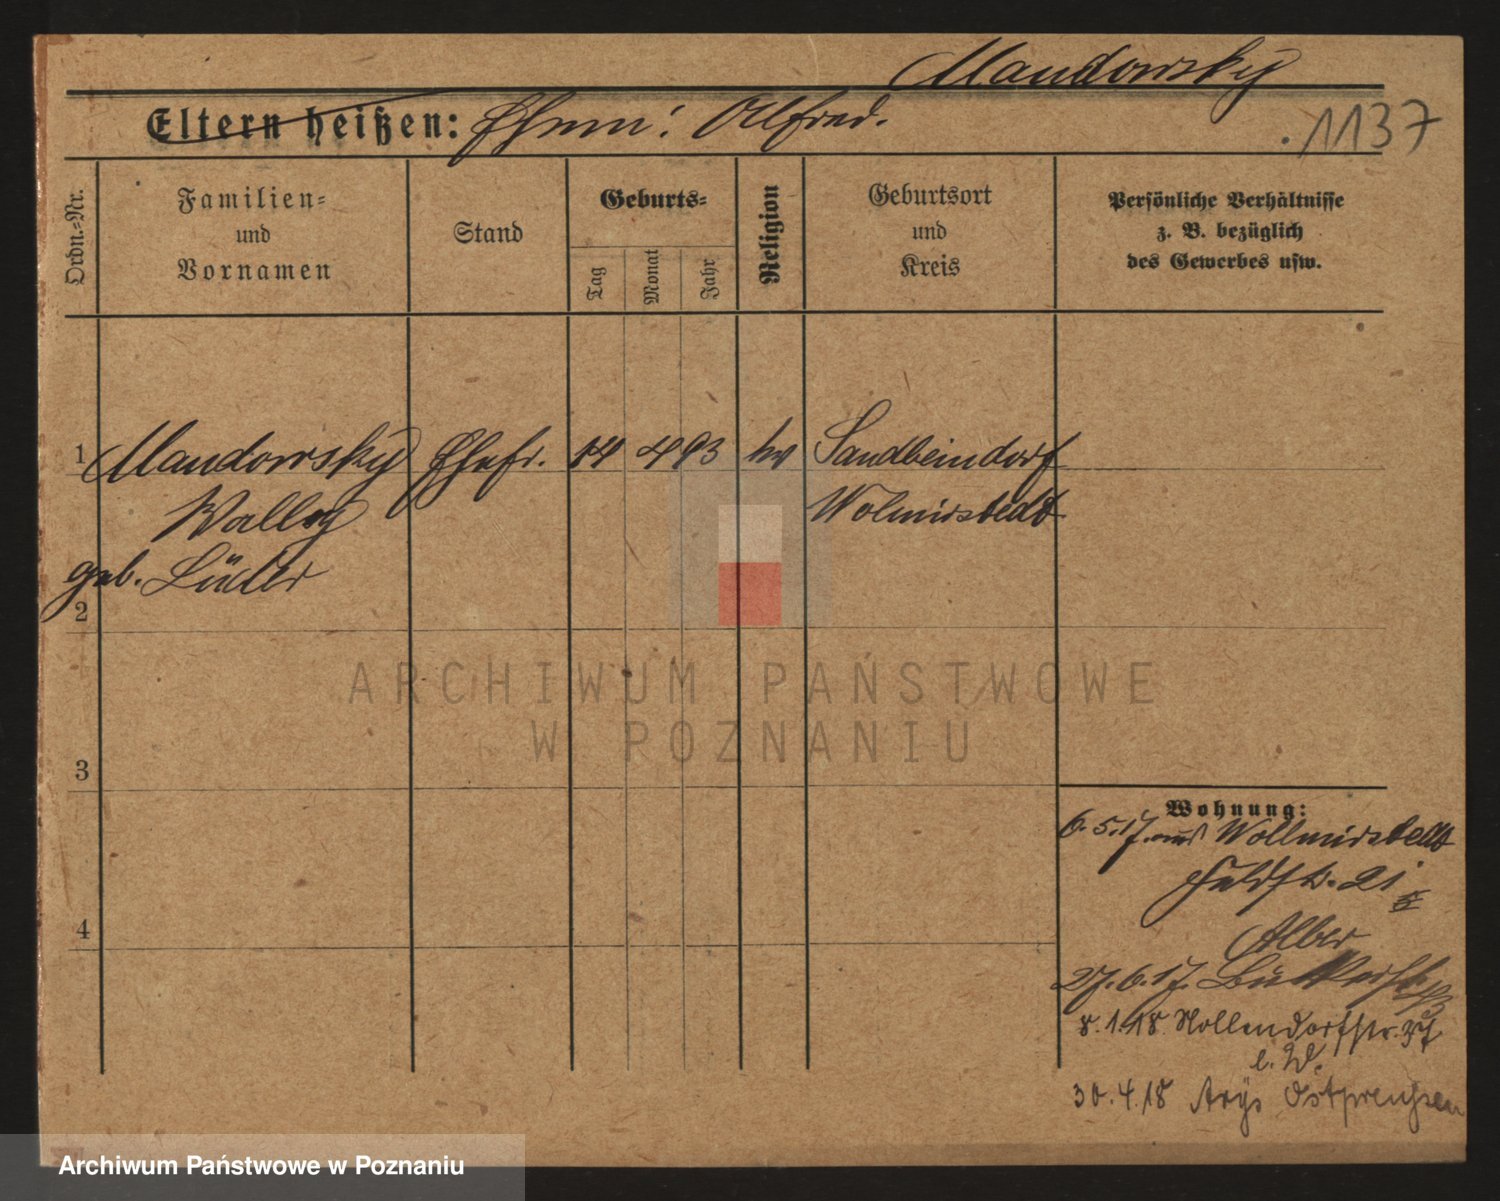 Mandowsky
Eltern heißen: Ehem: Alfred.
1137
Ordn.-Nr.
Familien-
und
Vornamen
Stand
Geburts-
Tag
Monat
Jahr
Religion
Geburtsort
und
Kreis
Persönliche Verhältnisse
z. B. bezüglich
des Gewerbes usw.
1 Mandowsky Ehefr. 14 4 93 ev Sandbeiendorf
Wally Wolmirstedt
geb. Lüder
2
3
4
Wohnung:
6.5.17. aus Wollmirstedt
21
Alber
27.6.17.
8.1.18. Nollendorfstr. 37
b. W.
30.4.18 Arys Ostpreußen
ARCHIWUM PAŃSTWOWE
W POZNANIU
Archiwum Państwowe w Poznaniu